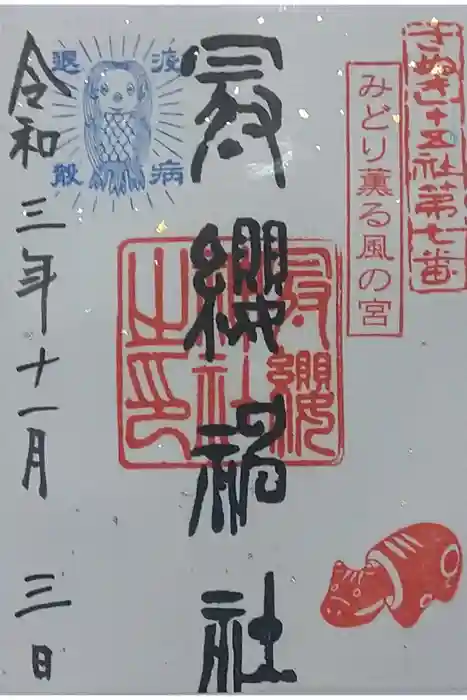 さぬき十五社第七番
みどり薫る風の宮
冠纓神社
冠纓
神社
之印
疫病
退散
令和三年十一月三日